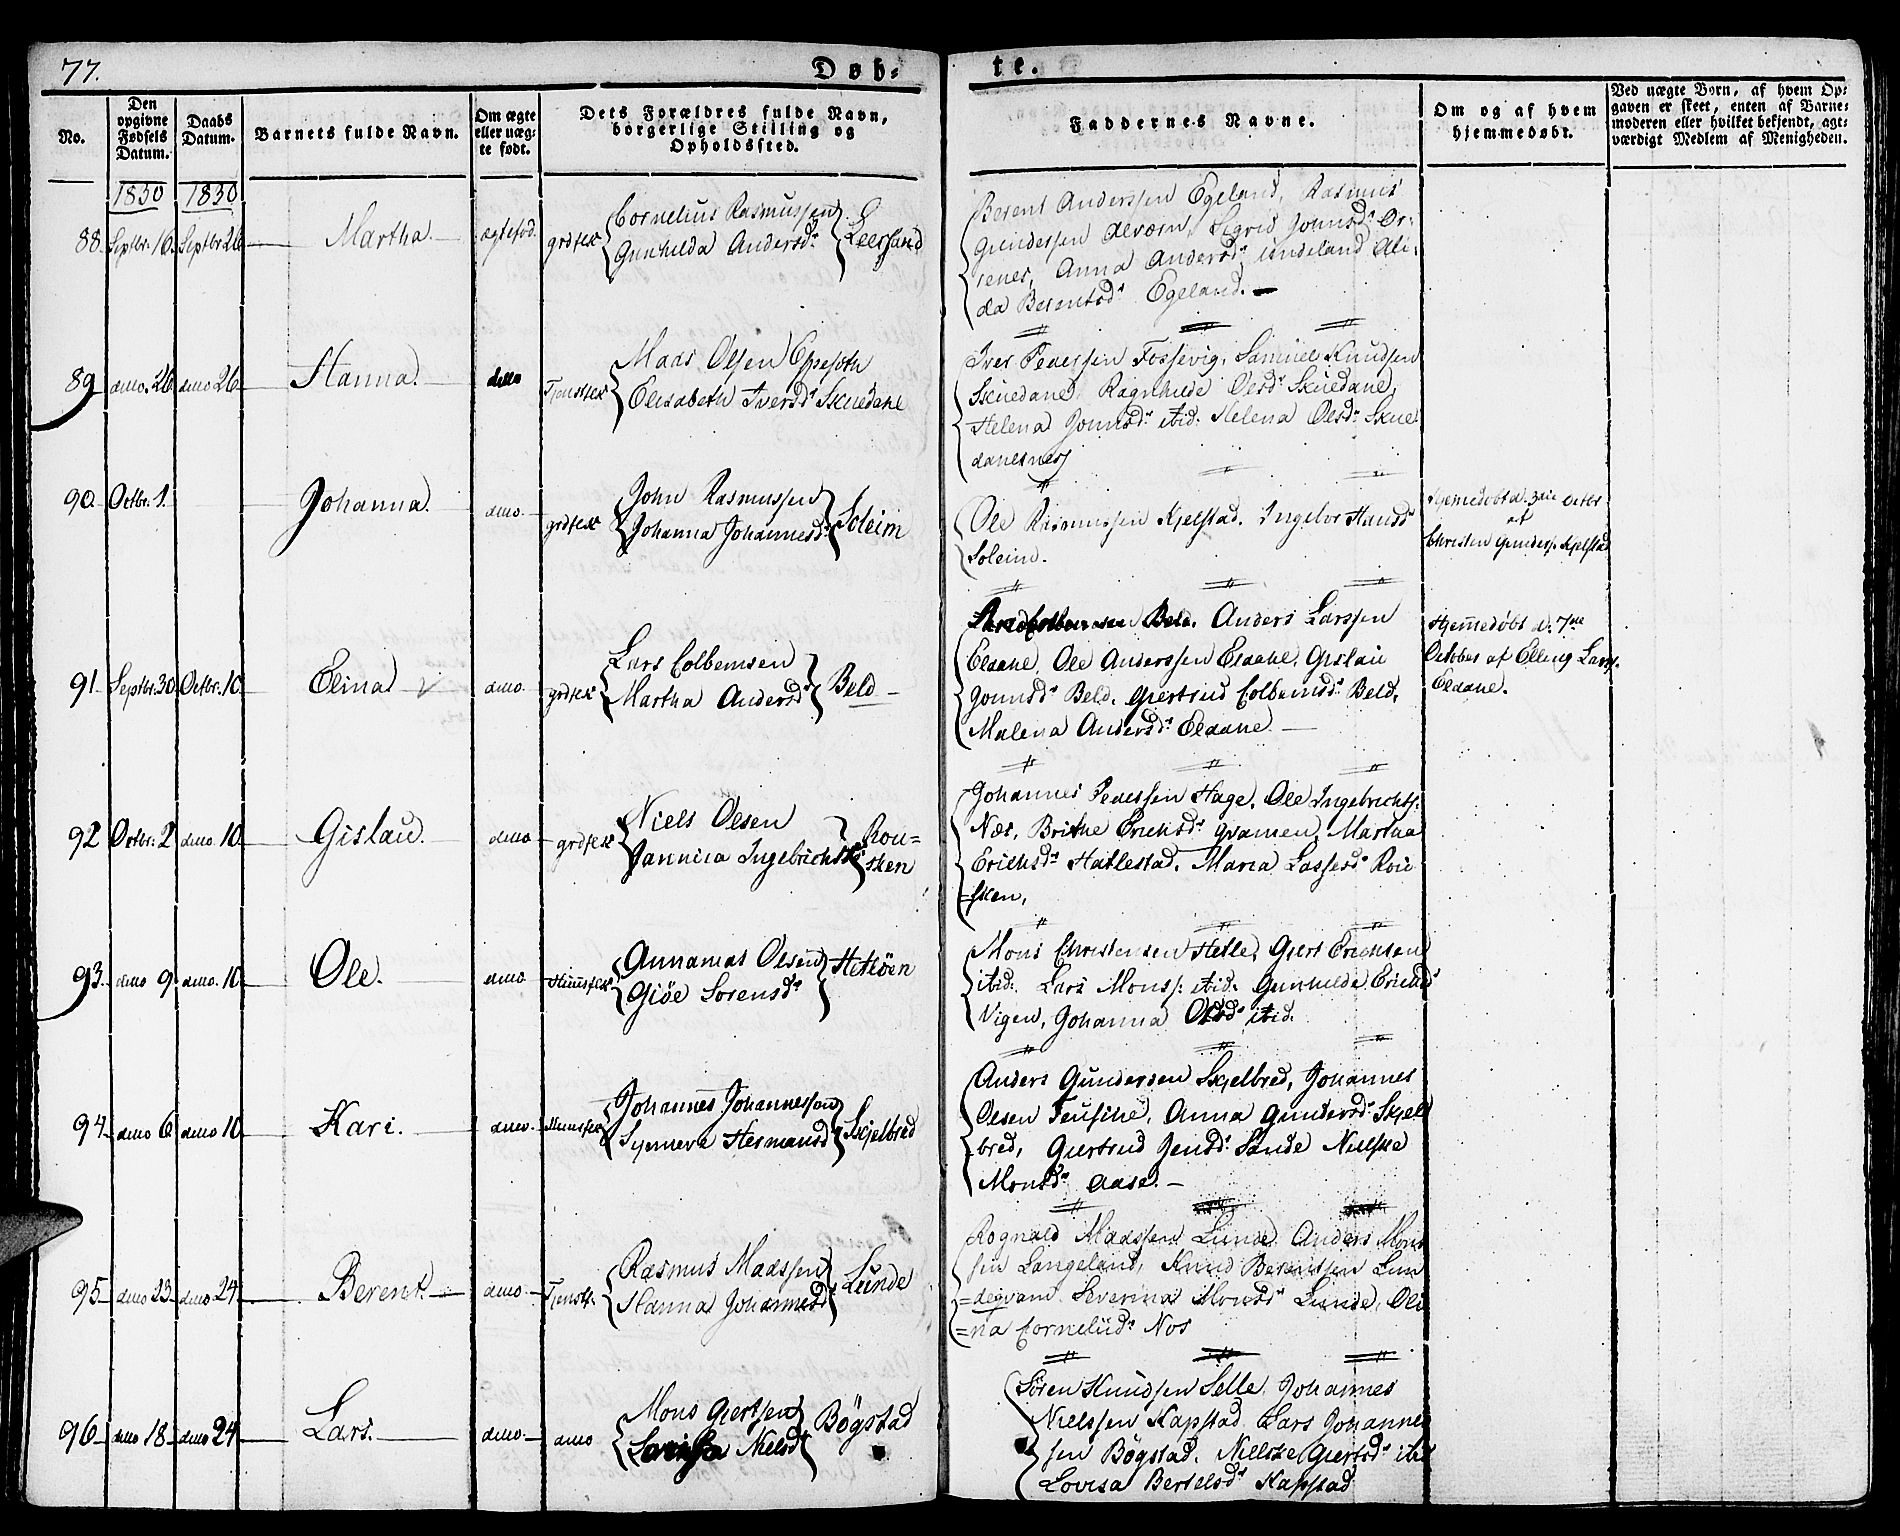 77.
Døb-
te.
No.
Den opgivne Fødsels Datum.
Daabs Datum.
Barnets fulde Navn.
Om ægte eller uæg- te født.
Dets Forældres fulde Navn, borgerlige Stilling og Opholdssted.
Faddernes Navne.
Om og af hvem hjemmedøbt.
Ved uægte Børn, af hvem Op- gaven er skeet, enten af Barne- moderen eller hvilket bekjendt, agt- værdigt Medlem af Menigheden.
1830 1830
88. Septbr. 16. Septbr 26 Martha. ægtefød.
Cornelius Rasmussen
Gunhilda Andersd.
Leersand
Berent Anderssen Egeland, Rasmus
Gundersen Alværn, Sigrid Johnsd.
Anna Andersd. Undeland Ali-
da Berentsd. Egeland.
89 dmo. 26 dmo 26 Hanna. ditto
Mads Olsen
Elisabeth Iversd. Skuedane
Iver Pedersen Fossevig, Samuel Knudsen
Skuedane, Ragnhilde Olsd. Skuedane,
Helena Jonsd. ibid. Helena Olsd. Skue
danesnes
90. Octbr. 1. Johanna dmo. grdfolk
John Rasmussen
Johanna Johannesd.
Soleim
Ole Rasmussen Kjelstad. Ingebor Hansd.
Soleim.
Hjemedøbt d. 3die Octbr
af
Christen Gunders. Kjelstad
91 Septbr. 30 Octbr. 10 Elina dmo. grdfolk
Lars Colbensen
Martha Andersd.
Beld
Beld. Anders Larssen
Eldane, Ole Anderssen Eldane, Gislau
Jonsd. Beld, Giertrud Colbensd. Beld,
Malena Andersd. Eldane
Hjemedøbt d. 7de
October af Elling Lars.
Eldane.
92 Octbr. 2 dmo. 10. Gislau. dmo grdfolk
Niels Olsen
Jannica Ingebrichtsd.
Rou-
sken
Johannes Pedersen Hage, Ole Ingebrichts.
Næs, Brithe Erichsd. Martha
Erichsd. Hatlestad. Maria Lassesd. Rou
=sken,
93. dmo 9. dmo. 10. Ole. dmo
Annanias Olsen
Giøe Sørensd.
Mons Christensen Helle, Giert Erichsen
ibid. Lars Mons: ibid. Gunhilde Erichsd.
Vigen, Johanna Olsd. ibid.
94. dmo 6 dmo 10. Kari. dmo.
Johannes Johannessen
Synneva Hermansd.
Skjelbred
Anders Gundersen Skjelbred, Johannes
Olsen Anna Gundersd. Skjel
bred, Giertrud Jensd. Sande Nielske
Monsd. Aase.
95 dmo 23 dmo 24 Berent dmo.
Rasmus Madssen
Hanna Johannesd.
Lunde
Rognald Madssen Lunde, Anders Mons
sen Langeland, Knud Berentsen Lun
=degvam Severina Monsd. Lunde, Oli
=na Corneliid. Nos
96 dmo 18 dmo 24 Lars. dmo. dmo
Mons Giertsen
Nielsd.
Bøgstad
Søren Knudsen Selle, Johannes
Nielssen Kapstad, Lars Johannes
sen Bøgstad, Nielske Giertsd. ibid
Lovisa Bertelsd. Kapstad